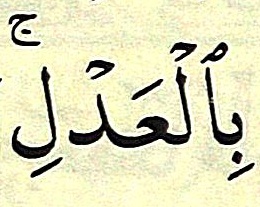 بِٱلۡعَدۡلِۚ